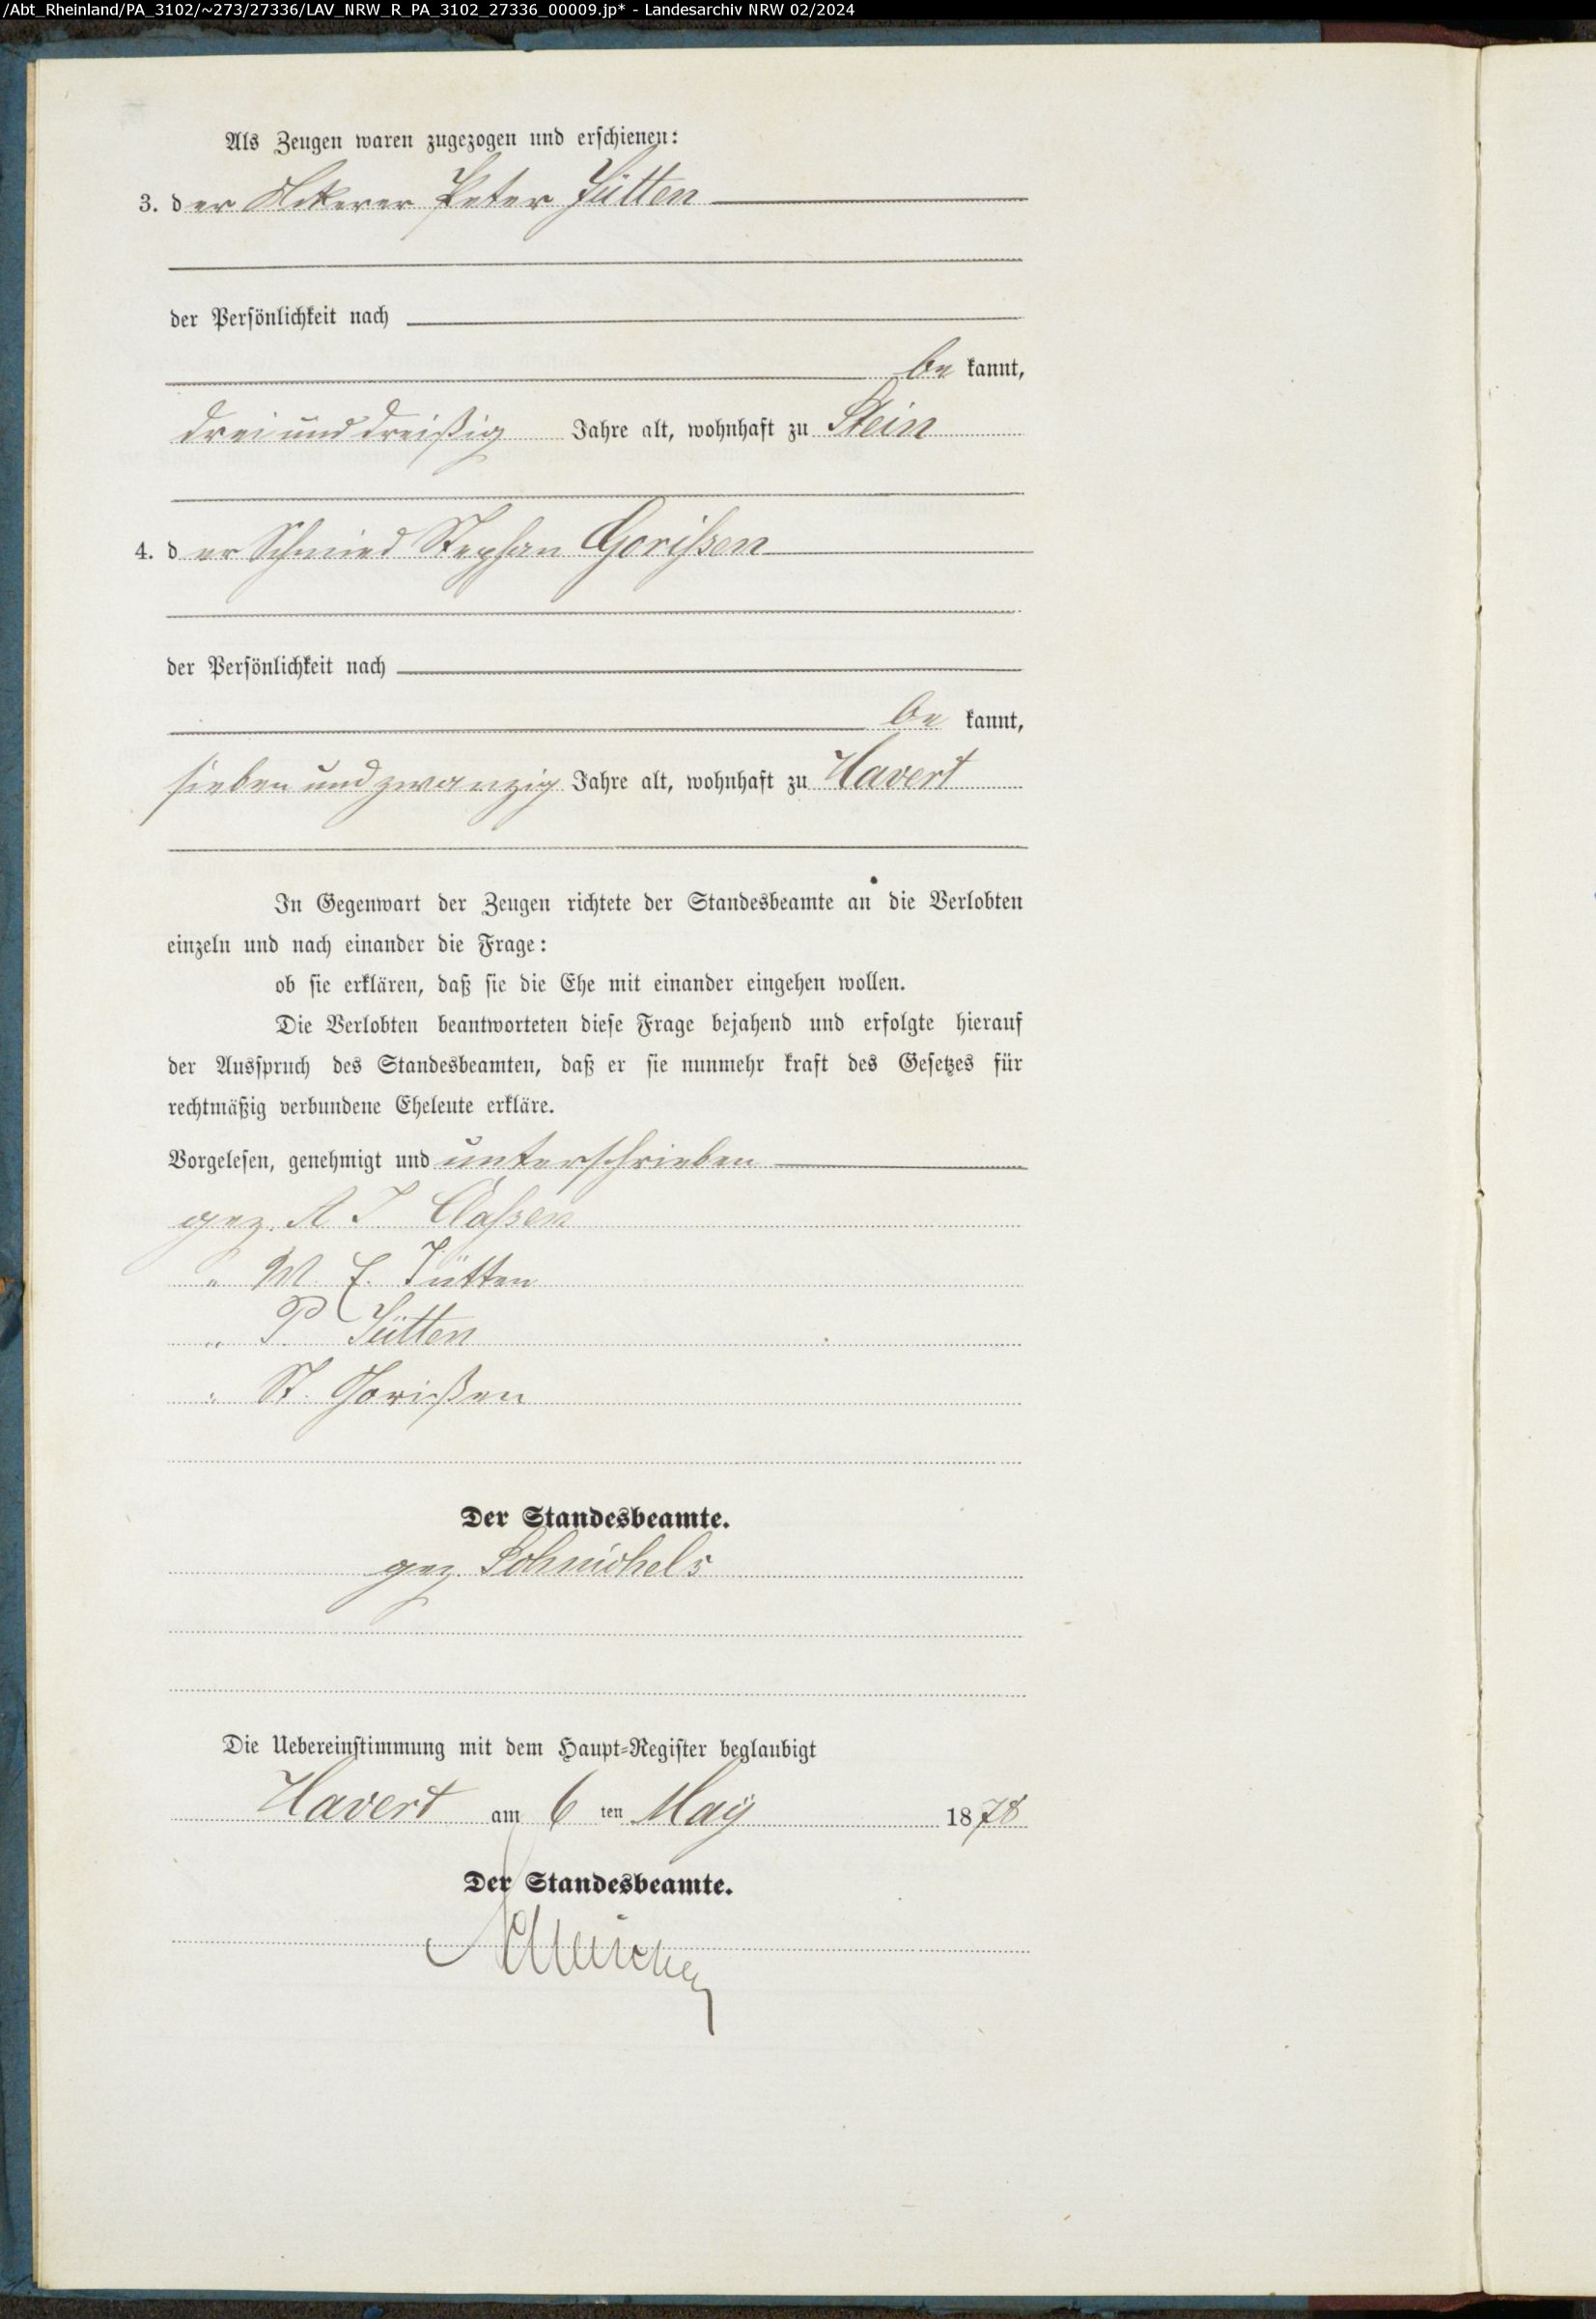 /Abt_Rheinland/PA_3102/~273/27336/LAV_NRW_R_PA_3102_27336_00009.jp* - Landesarchiv NRW 02/2024
Als Zeugen waren zugezogen und erschienen:
3. der Ackerer Peter Jütten
der Persönlichkeit nach
be kannt,
drei und dreißig Jahre alt, wohnhaft zu Stein
4. der Schmied Stephan Gorißen
der Persönlichkeit nach
be kannt,
sieben und zwanzig Jahre alt, wohnhaft zu Havert
In Gegenwart der Zeugen richtete der Standesbeamte an die Verlobten
einzeln und nach einander die Frage:
ob sie erklären, daß sie die Ehe mit einander eingehen wollen.
Die Verlobten beantworteten diese Frage bejahend und erfolgte hierauf
der Ausspruch des Standesbeamten, daß er sie nunmehr kraft des Gesetzes für
rechtmäßig verbundene Eheleute erkläre.
Vorgelesen, genehmigt und unterschrieben
gez. A J Claßen
" W. E. Jütten
" P Jütten
" St. Gorißen
Der Standesbeamte.
gez.
Die Uebereinstimmung mit dem Haupt=Register beglaubigt
Havert am 6 ten May 1878
Der Standesbeamte.